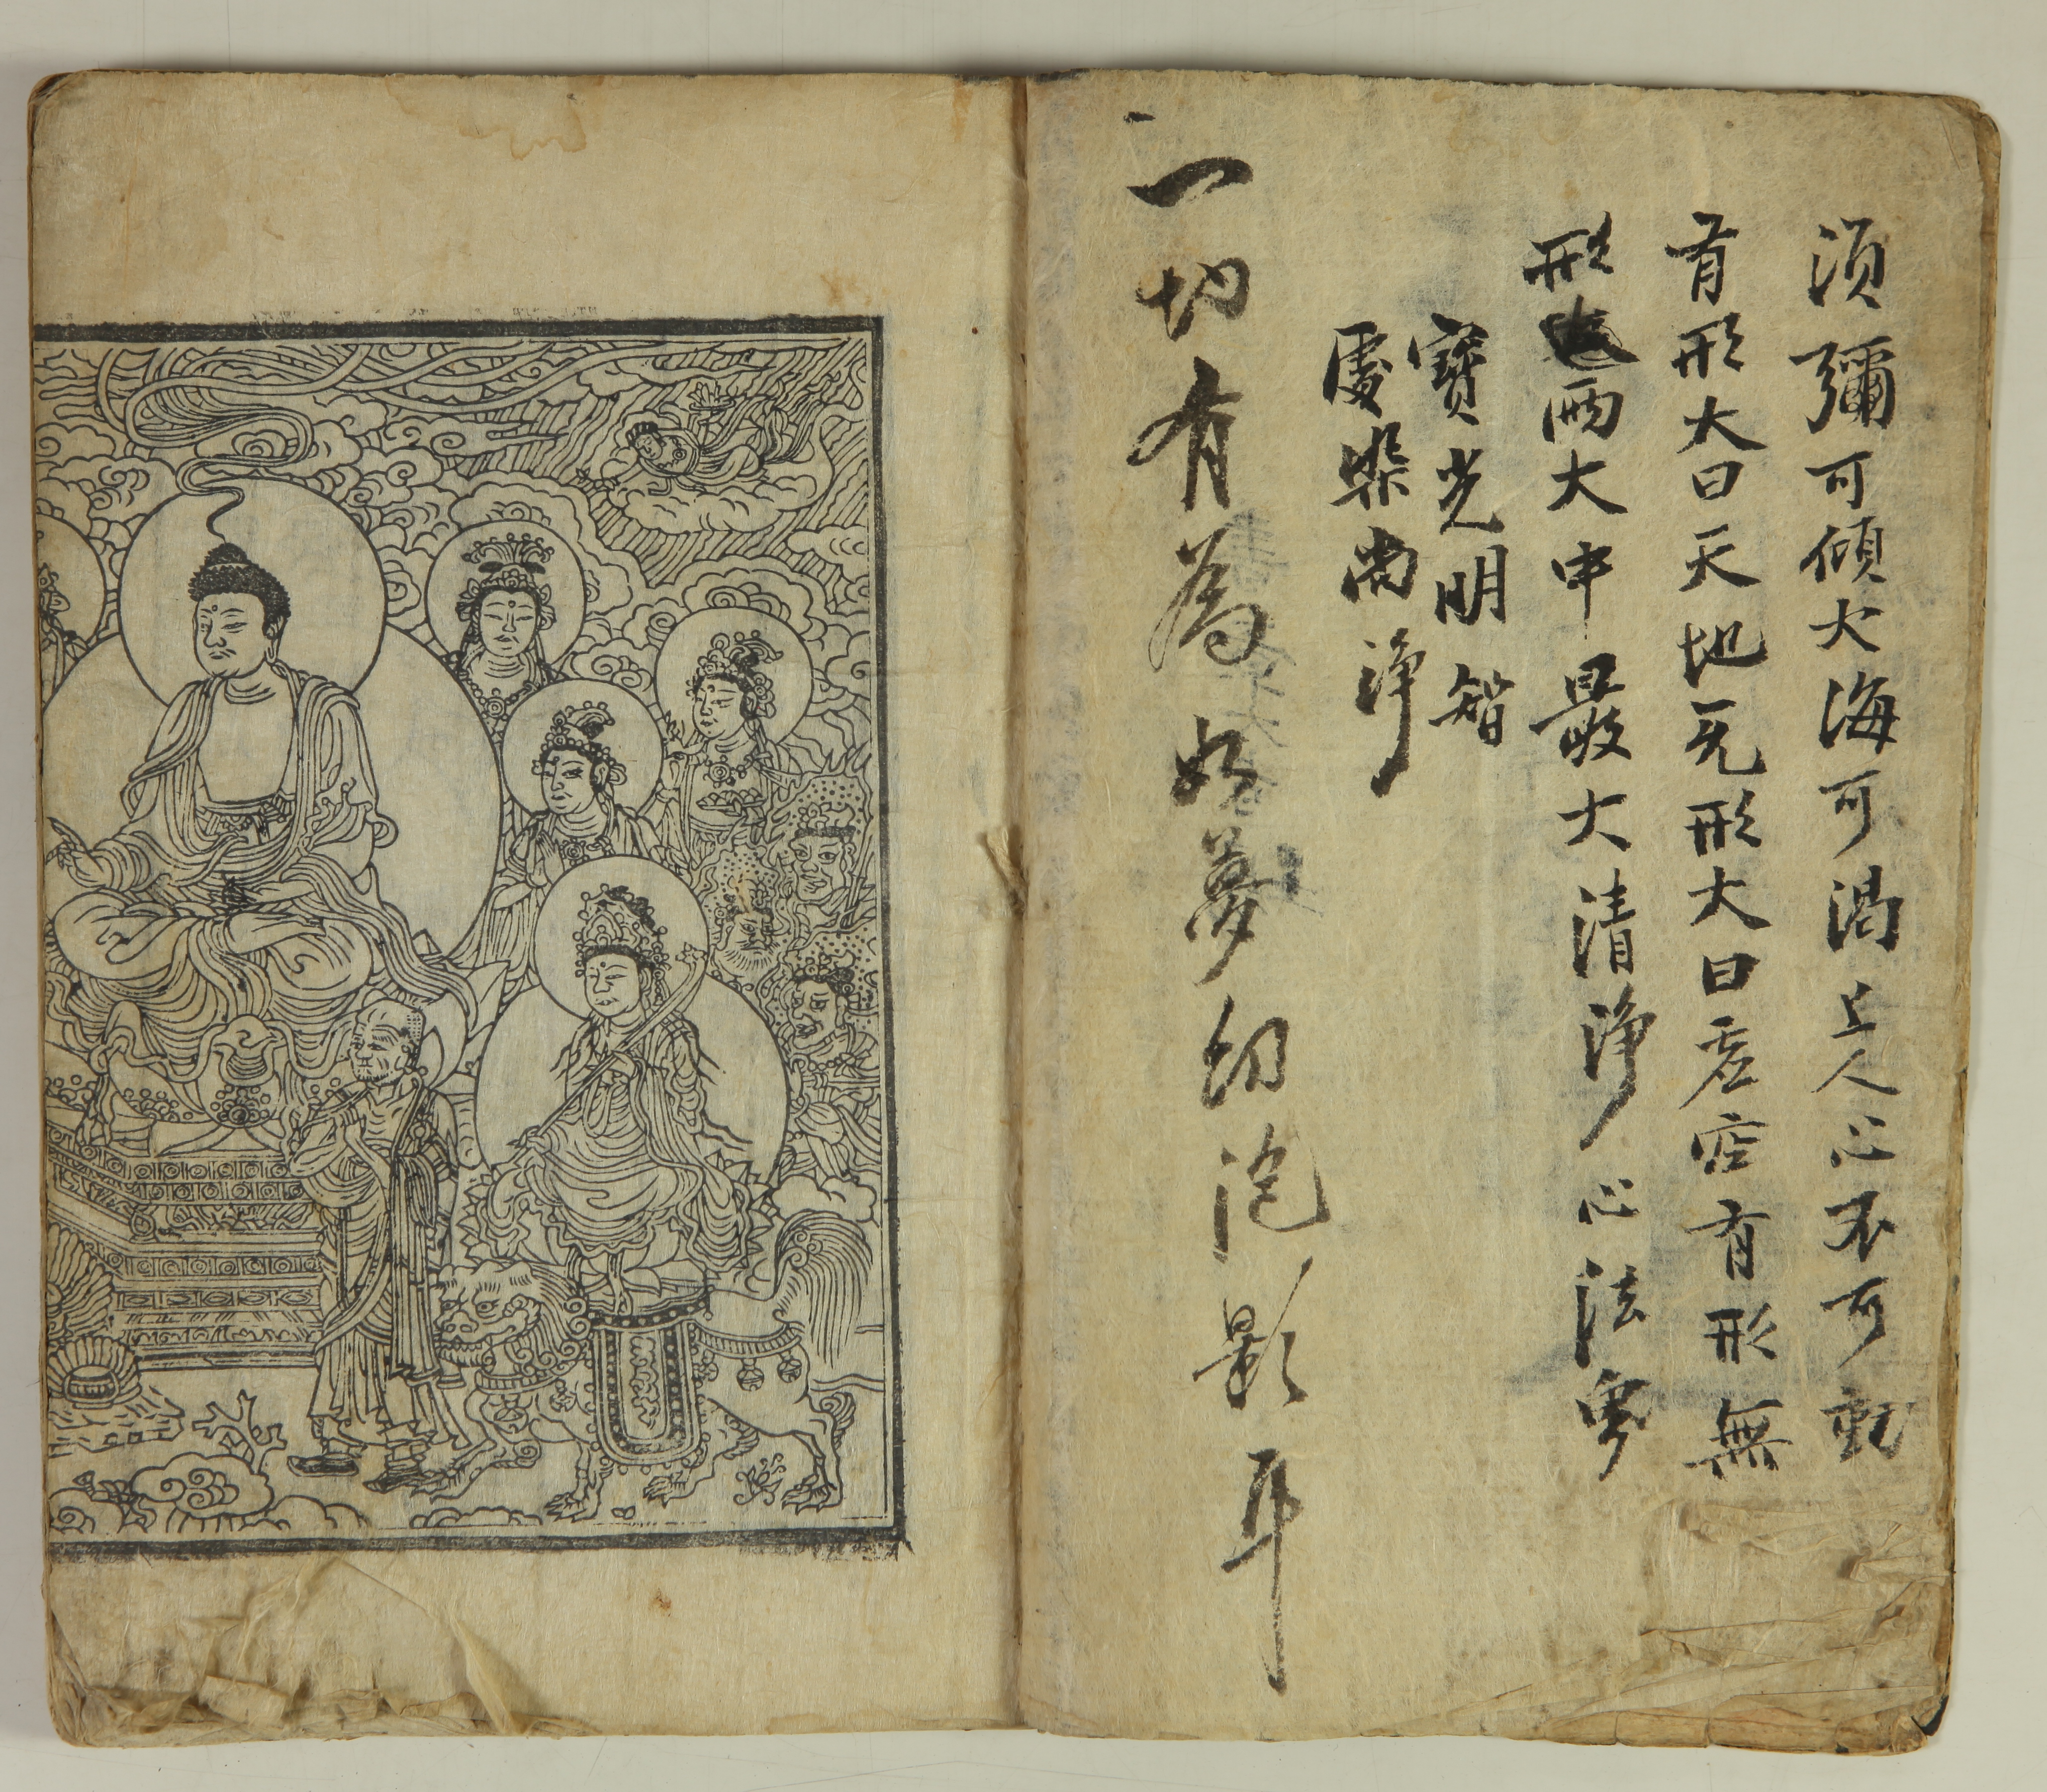 須彌可傾大海可渴上人心不可動
有形大曰天地无形大曰虛空有形無
形兩大中最大清淨心法界
寶光明智
處染尚淨
一切有為如夢幻泡影耳